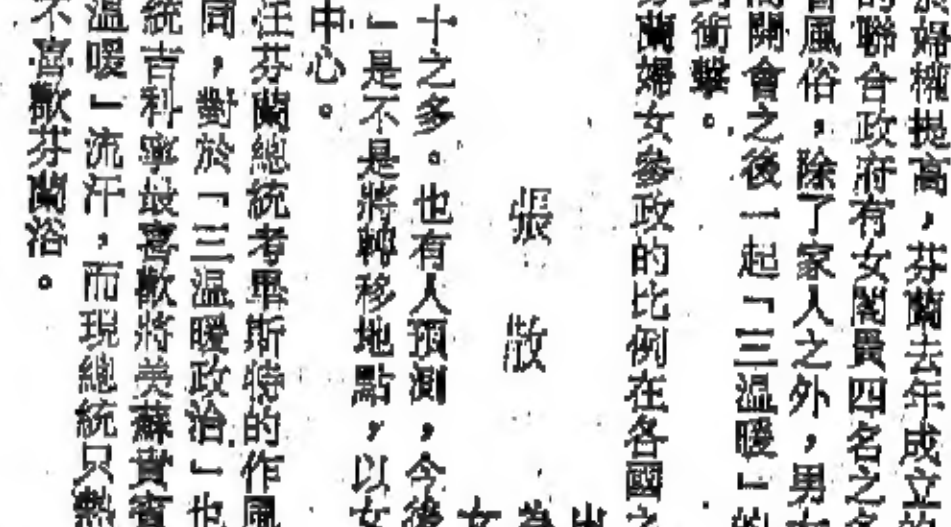 於婦權提高，芬蘭去年成立的
的聯合政府有女閣員四名之
風俗，除了家人之外，男女
開會之後一起「三温暖」的
衝擊。
芬蘭婦女參政的比例在各國之
張 敞
十之多。也有人預測，今後
「是不是將轉移地點，以女
中心。
任芬蘭總統考里斯特的作風
同，對於「三温暖政治」也
統吉科寧最喜歡將美蘇貴賓
温暖」流汗，而現總統只熱
不喜歡芬蘭浴。